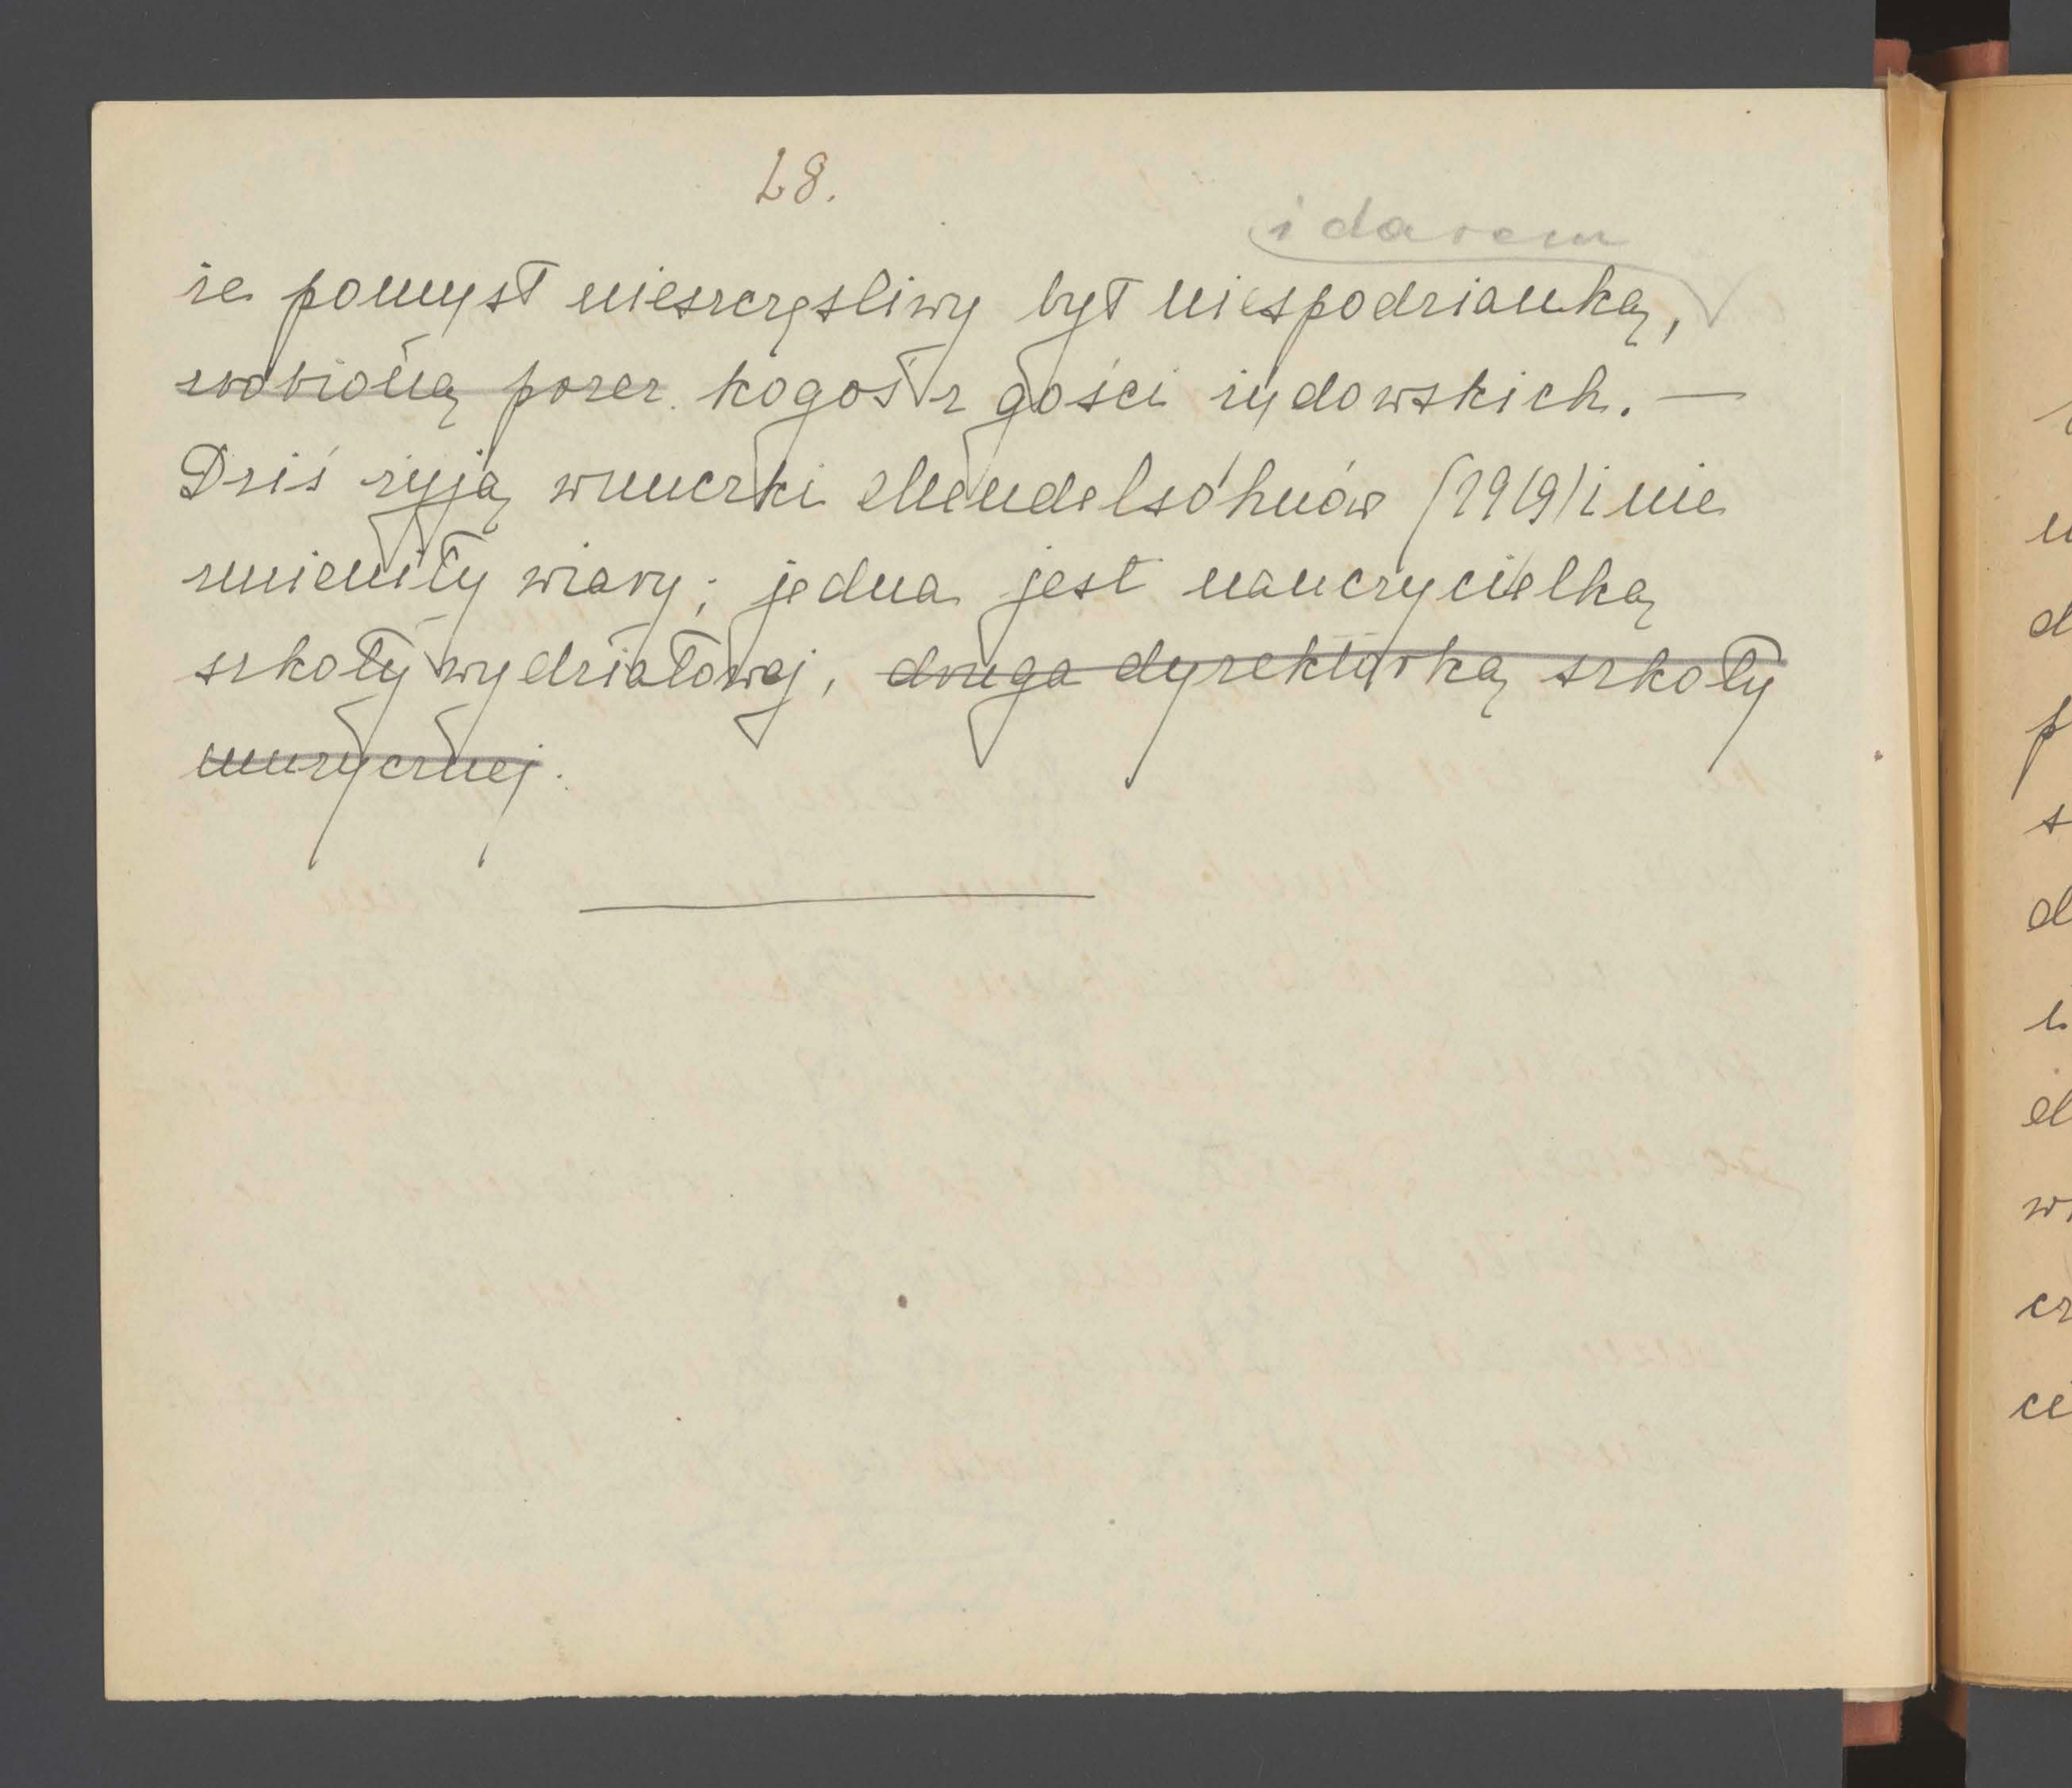 28.
i darem
że pomysł nieszczęśliwy był niespodzianką,
zrobioną przez kogoś z gości żydowskich. —
Dziś żyją wnuczki Mendelsohnów (1919) i nie
zmieniły wiary; jedna jest nauczycielką
szkoły wydziałowej, druga dyrektorką szkoły
muzycznej.